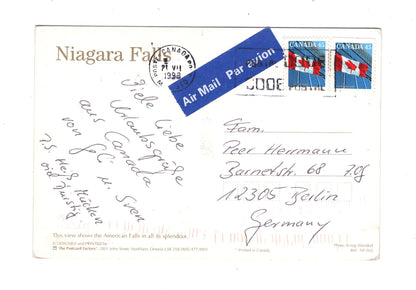 Niagara Falls
CANADA
VII
1998
Air Mail Par avion
CANADA 45
CANADA 45
CODE POSTAL
Viele liebe
Urlaubsgrüße
aus Canada
von
u. Sven
P.S. Heiß, Mücken
Fam.
Peer Herrmann
Barnetstr. 68
12305 Berlin
Germany
This view shows the American Falls in all its splendour.
DESIGNED and PRINTED by
The Postcard Factory
Printed in Canada